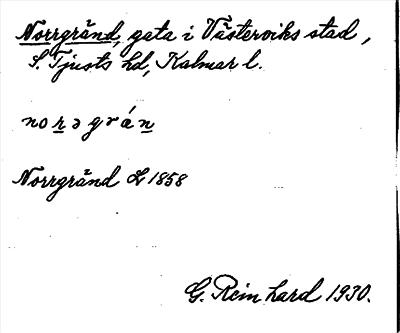 Norrgränd, gata i Västerviks stad,
S. Tjusts hd, Kalmar l.
norəgrán
Norrgränd L 1858
G. Reinhard 1930.